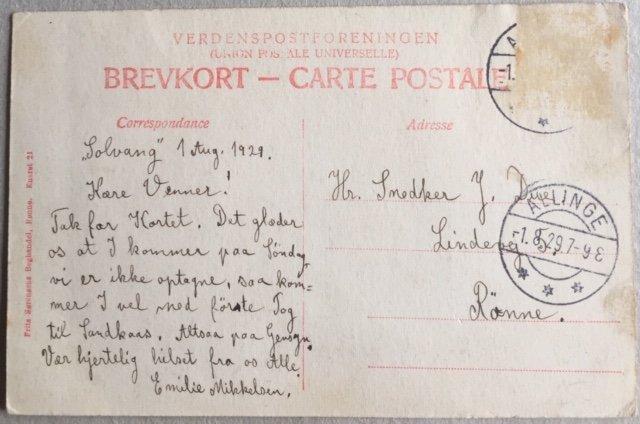 VERDENSPOSTFORENINGEN
(UNION POSTALE UNIVERSELLE)
BREVKORT — CARTE POSTALE
Correspondance
Adresse
„Solvang" 1 Aug. 1929.
Kære Venner!
Tak for Kortet. Det glæder
os at I kommer paa Søndag,
vi er ikke optagne, saa kom=
mer I vel med første Tog
til Sandkaas. Altsaa paa Gensyn.
Vær hjertelig hilset fra os Alle.
Emilie Mikkelsen.
Hr. Snedker J.
Lindevej
Rönne.
ALLINGE
-1.8.29.7-9 E
A
-1.
Frits Sørensens Boghandel, Rønne. Eneret 21